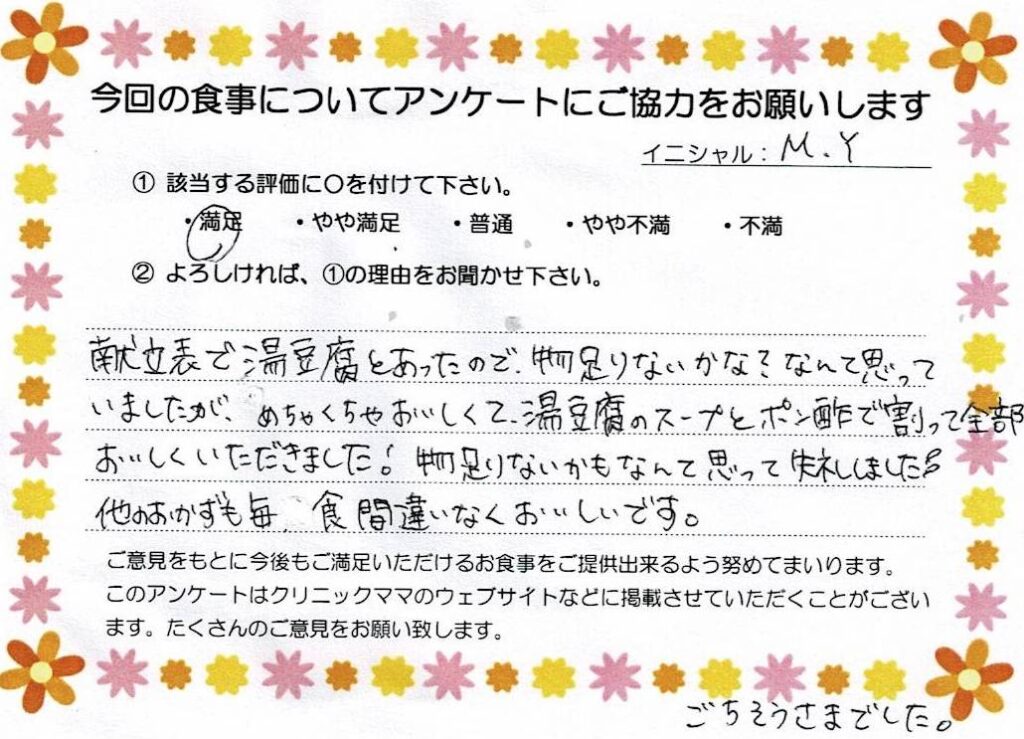 今回の食事についてアンケートにご協力をお願いします
イニシャル：M.Y
① 該当する評価に〇を付けて下さい。
・満足 ・やや満足 ・普通 ・やや不満 ・不満
② よろしければ、①の理由をお聞かせ下さい。
献立表で湯豆腐とあったので、物足りないかな？なんて思って
いましたが、めちゃくちゃおいしくて、湯豆腐のスープとポン酢で割って全部
おいしくいただきました！物足りないかもなんて思って失礼しました
他のおかずも毎食間違いなくおいしいです。
ご意見をもとに今後もご満足いただけるお食事をご提供出来るよう努めてまいります。
このアンケートはクリニックママのウェブサイトなどに掲載させていただくことがござい
ます。たくさんのご意見をお願い致します。
ごちそうさまでした。